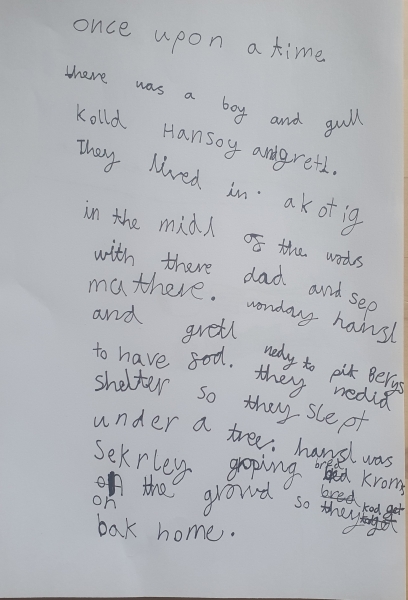 once upon a time
there was a boy and gull
kolld Hansoy and gretl.
They lived in. a kotig
in the midl of the wods
with there dad and sep
mathere. wonday hansl
and gretl
to have sod. nedy to pik Berys
shelter so they nedid
under a tree. they slept
Sekrley hansl was
groping bred kroms
on the growd so they kod get
bak home.